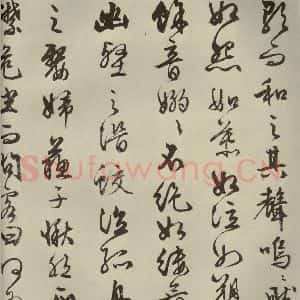 歌而和之其聲嗚〻然
如怨如慕如泣如訴
餘音嫋〻不絕如縷舞
幽壑之潛蛟泣孤舟
之嫠婦蘇子愀然正
襟危坐而問客曰何
Shufawang.CN